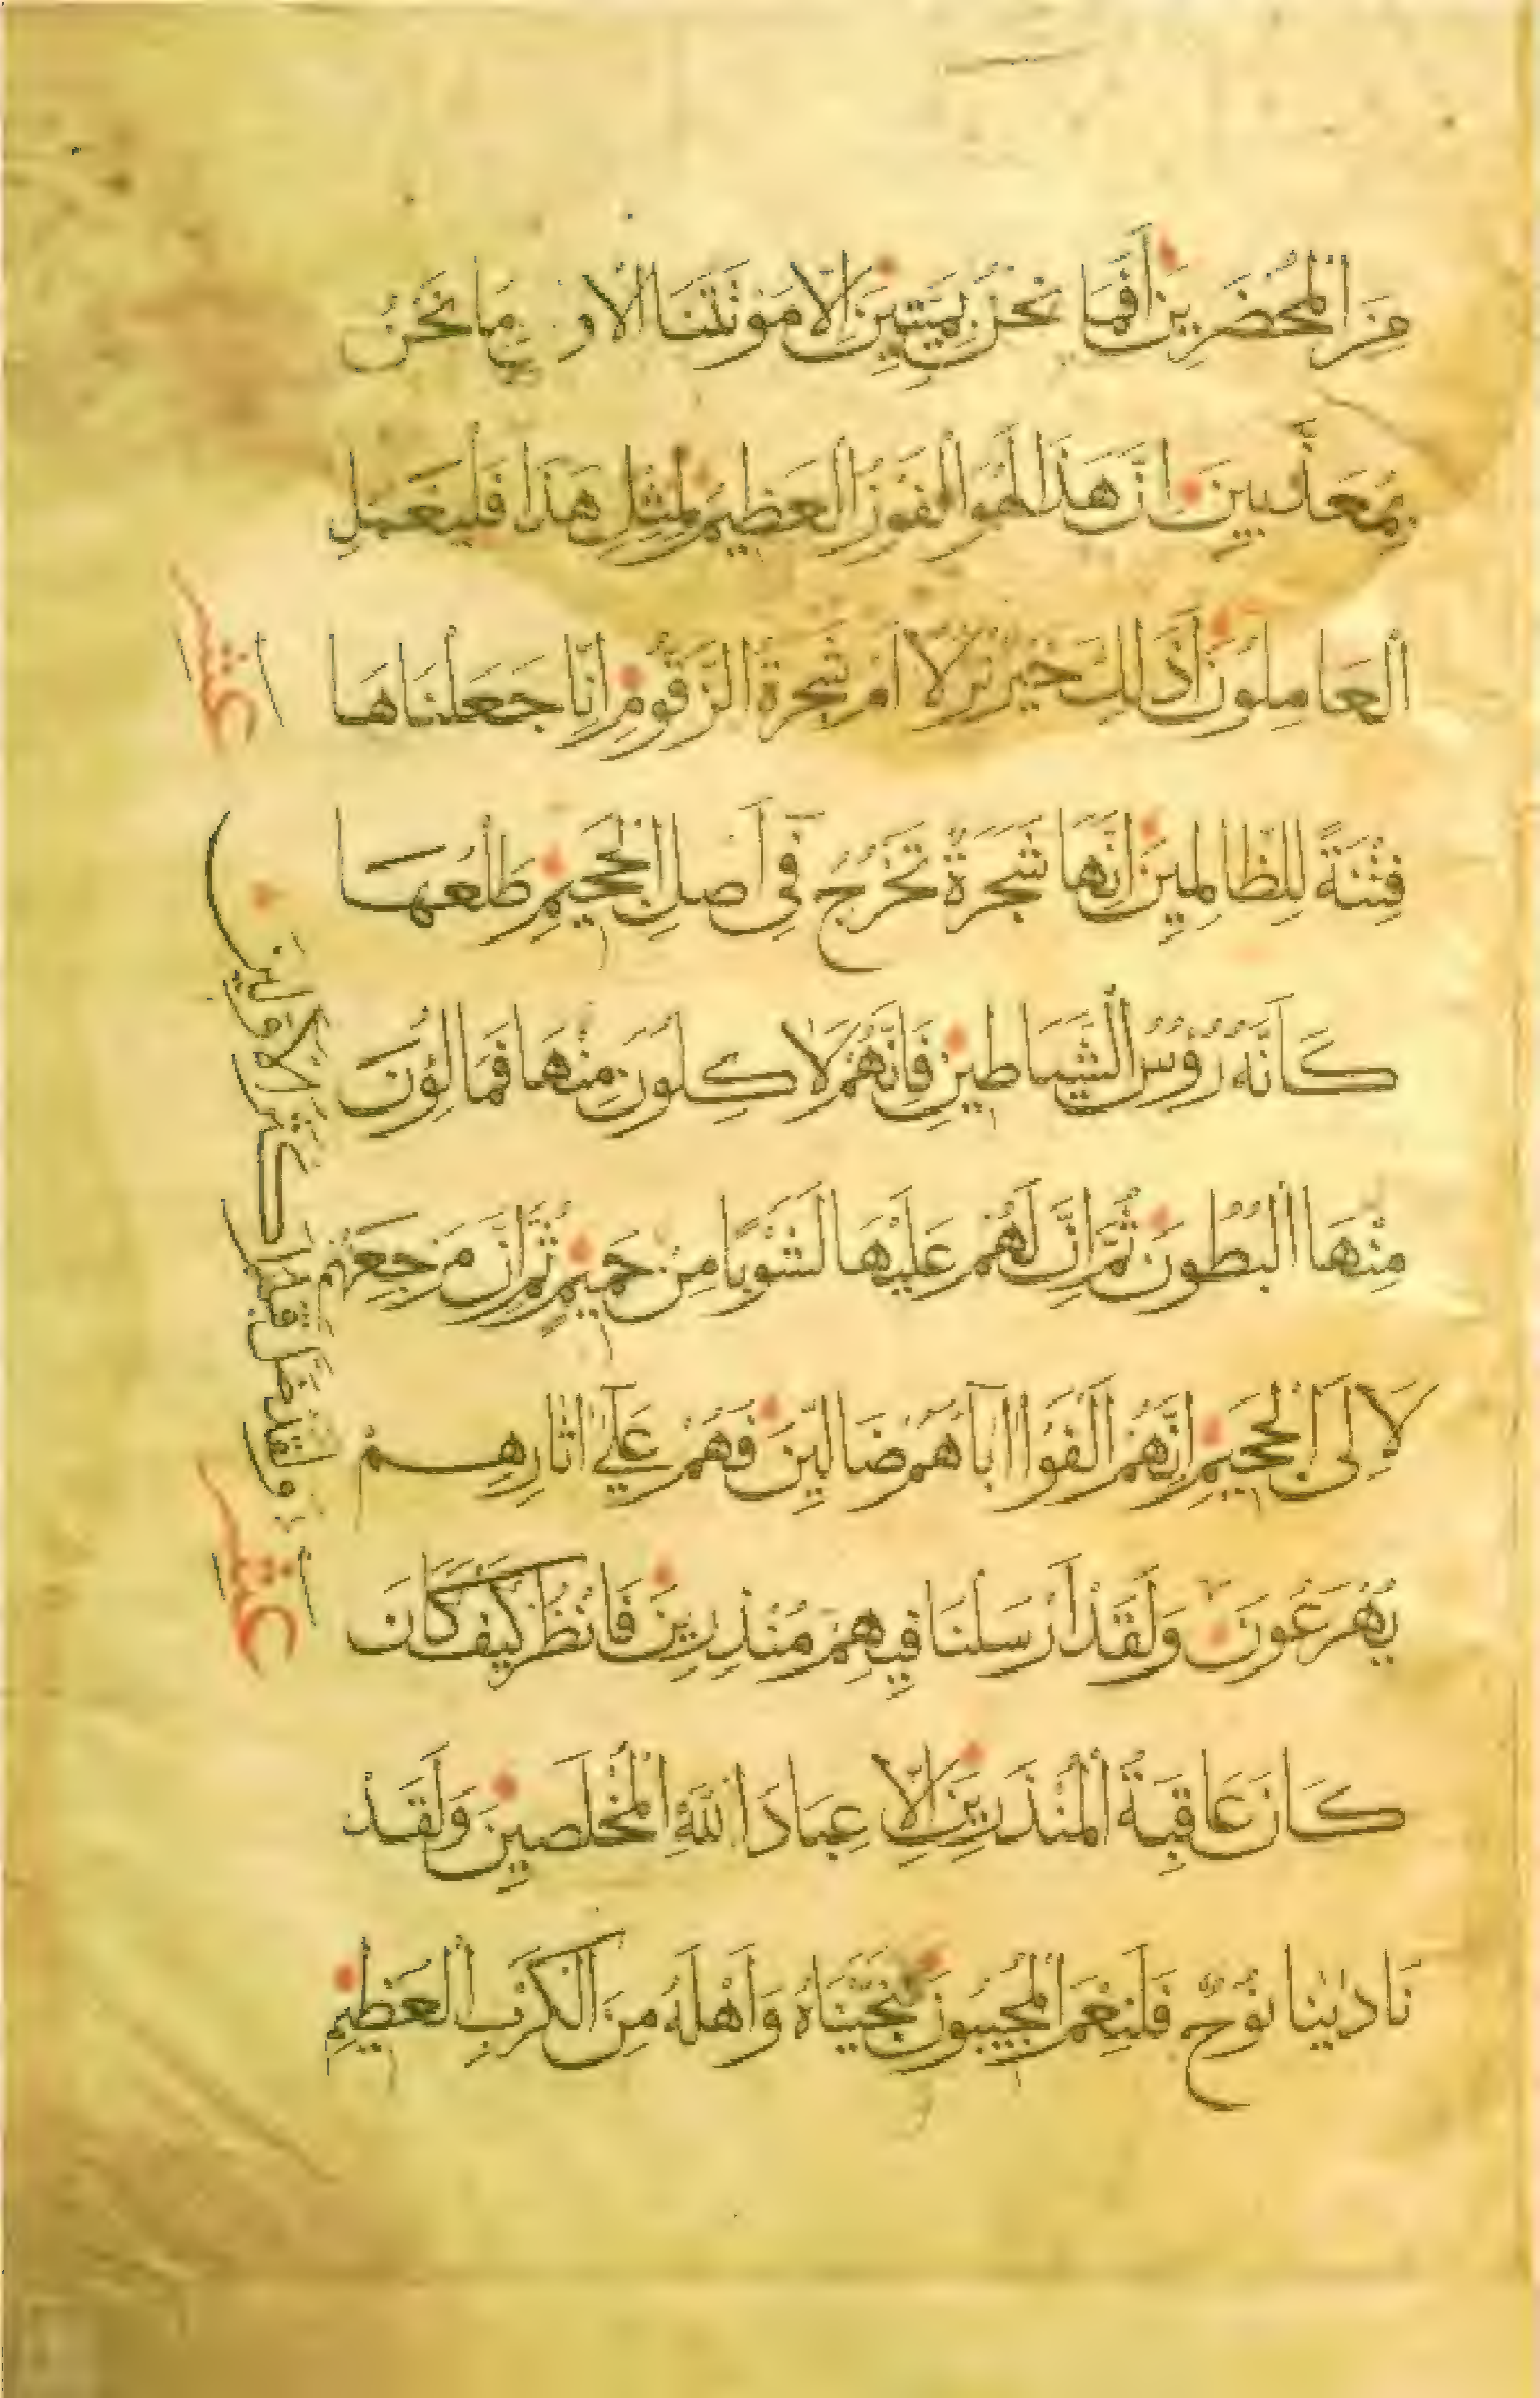 مِنَ الْمُحْضَرِينَ أَفَمَا نَحْنُ بِمَيِّتِينَ إِلَّا مَوْتَتَنَا الْأُو لىٰ وَمَا نَحْنُ
بِمُعَذَّبِينَ إِنَّ هَذَا لَهُوَ الْفَوْزُ الْعَظِيمُ لِمِثْلِ هَذَا فَلْيَعْمَلِ
الْعَامِلُونَ أَذَلِكَ خَيْرٌ نُزُلًا أَمْ شَجَرَةُ الزَّقُّومِ إِنَّا جَعَلْنَاهَا
عشر
فِتْنَةً لِلظَّالِمِينَ إِنَّهَا شَجَرَةٌ تَخْرُجُ فِي أَصْلِ الْجَحِيمِ طَلْعُهَا
كَأَنَّهُ رُؤُسُ الشَّيَاطِينِ فَإِنَّهُمْ لَاكِلُونَ مِنْهَا فَمَالِؤُنَ
مِنْهَا الْبُطُونَ ثُمَّ إِنَّ لَهُمْ عَلَيْهَا لَشَوْبًا مِنْ حَمِيمٍ ثُمَّ إِنَّ مَرْجِعَهُمْ
لَإِلَى الْجَحِيمِ إِنَّهُمْ أَلْفَوْا آبَاءَهُمْ ضَالِّينَ فَهُمْ عَلَى اثَارِهِمْ
يُهْرَعُونَ وَلَقَدْ أَرْسَلْنَا فِيهِمْ مُنْذِرِينَ فَانْظُرْ كَيْفَ كَانَ
عشر
كَانَ عَاقِبَةُ الْمُنْذَرِينَ إِلَّا عِبَادَ اللَّهِ الْمُخْلَصِينَ وَلَقَدْ
نَادَيْنَا نُوحٌ فَلَنِعْمَ الْمُجِيبُونَ وَنَجَّيْنَاهُ وَأَهْلَهُ مِنَ الْكَرْبِ الْعَظِيمِ
وَلَقَدْ ضَلَّ قَبْلَهُمْ أَكْثَرُ الْأَوَّلِينَ